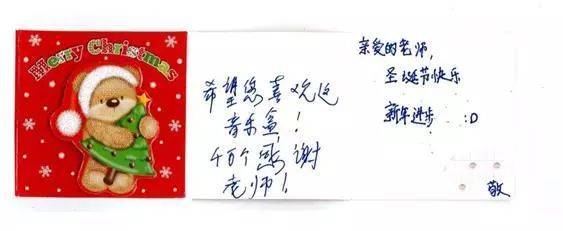 Merry Christmas
希望您喜欢这
音乐盒！
千万个感谢
老师！
亲爱的老师，
圣诞节快乐
新年进步 :D
敬